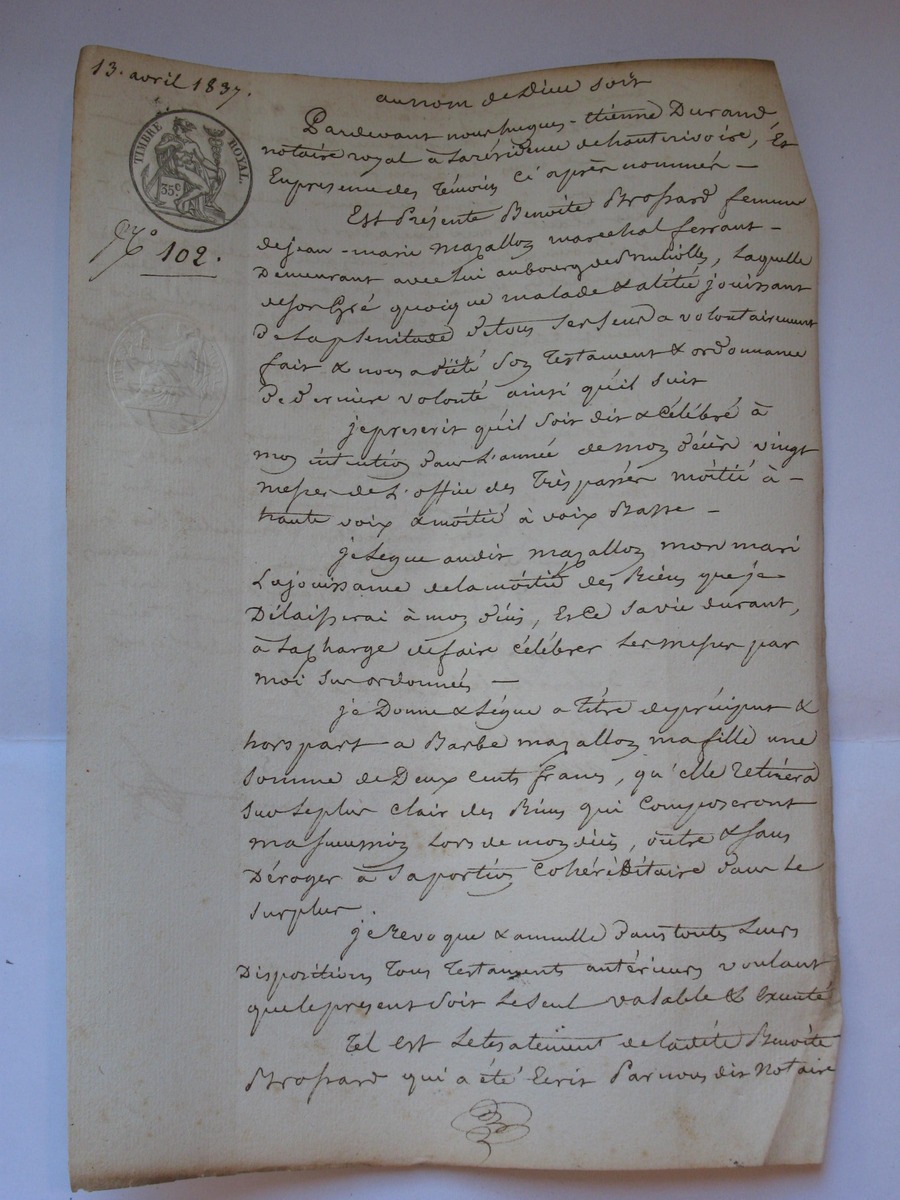 13. avril 1837.
au nom de Dieu soit
TIMBRE ROYAL.
35c
Nº 102.
Pardevant nous hugues-étienne Durand,
notaire royal à la résidence de hauterivoire, Et
En présence des Témoins Ci après nommés —
Est Présente Benoîte Brossard femme
de jean-marie mazalloz maréchal ferrant —
Demeurant avec lui au bourg de Brullioles, Laquelle
de son Gré quoique malade & alitée jouissant
De la plenitude de tous ses sens a volontairement
fait & nous a dicté son Testament & ordonnance
De dernière volonté ainsi qu'il suit
je prescrit qu'il soit dit & célébré à
moz intentioz dans L'année de moz décès vingt
messes de L'office des Trèspassés moitié à —
haute voix & moitié à voix Basse —
je Lègue audit mazalloz mon mari
La jouissance de la moitié des Biens que je
Délaisserai à moz décès, Et Ce sa vie durant,
à La Charge de faire célébrer Les messes par
moi sus ordonnées —
je Donne & Lègue a titre de préciput &
hors part a Barbe mazalloz ma fille une
Somme de Deux cents francs, qu'elle retirera
sur Le plus clair des Biens qui Composeront
ma successioz Lors de moz décès, outre & sans
Déroger à sa portioz Cohéréditaire dans Le
surplus.
je Revoque & annulle dans toutes Leurs
Dispositions Tous Testaments antérieurs voulant
que le présent soit Le seul valable & Executé
Tel est Le testatement de ladite Benoîte
Brossard qui a été Ecrit Par nous dit Notaire